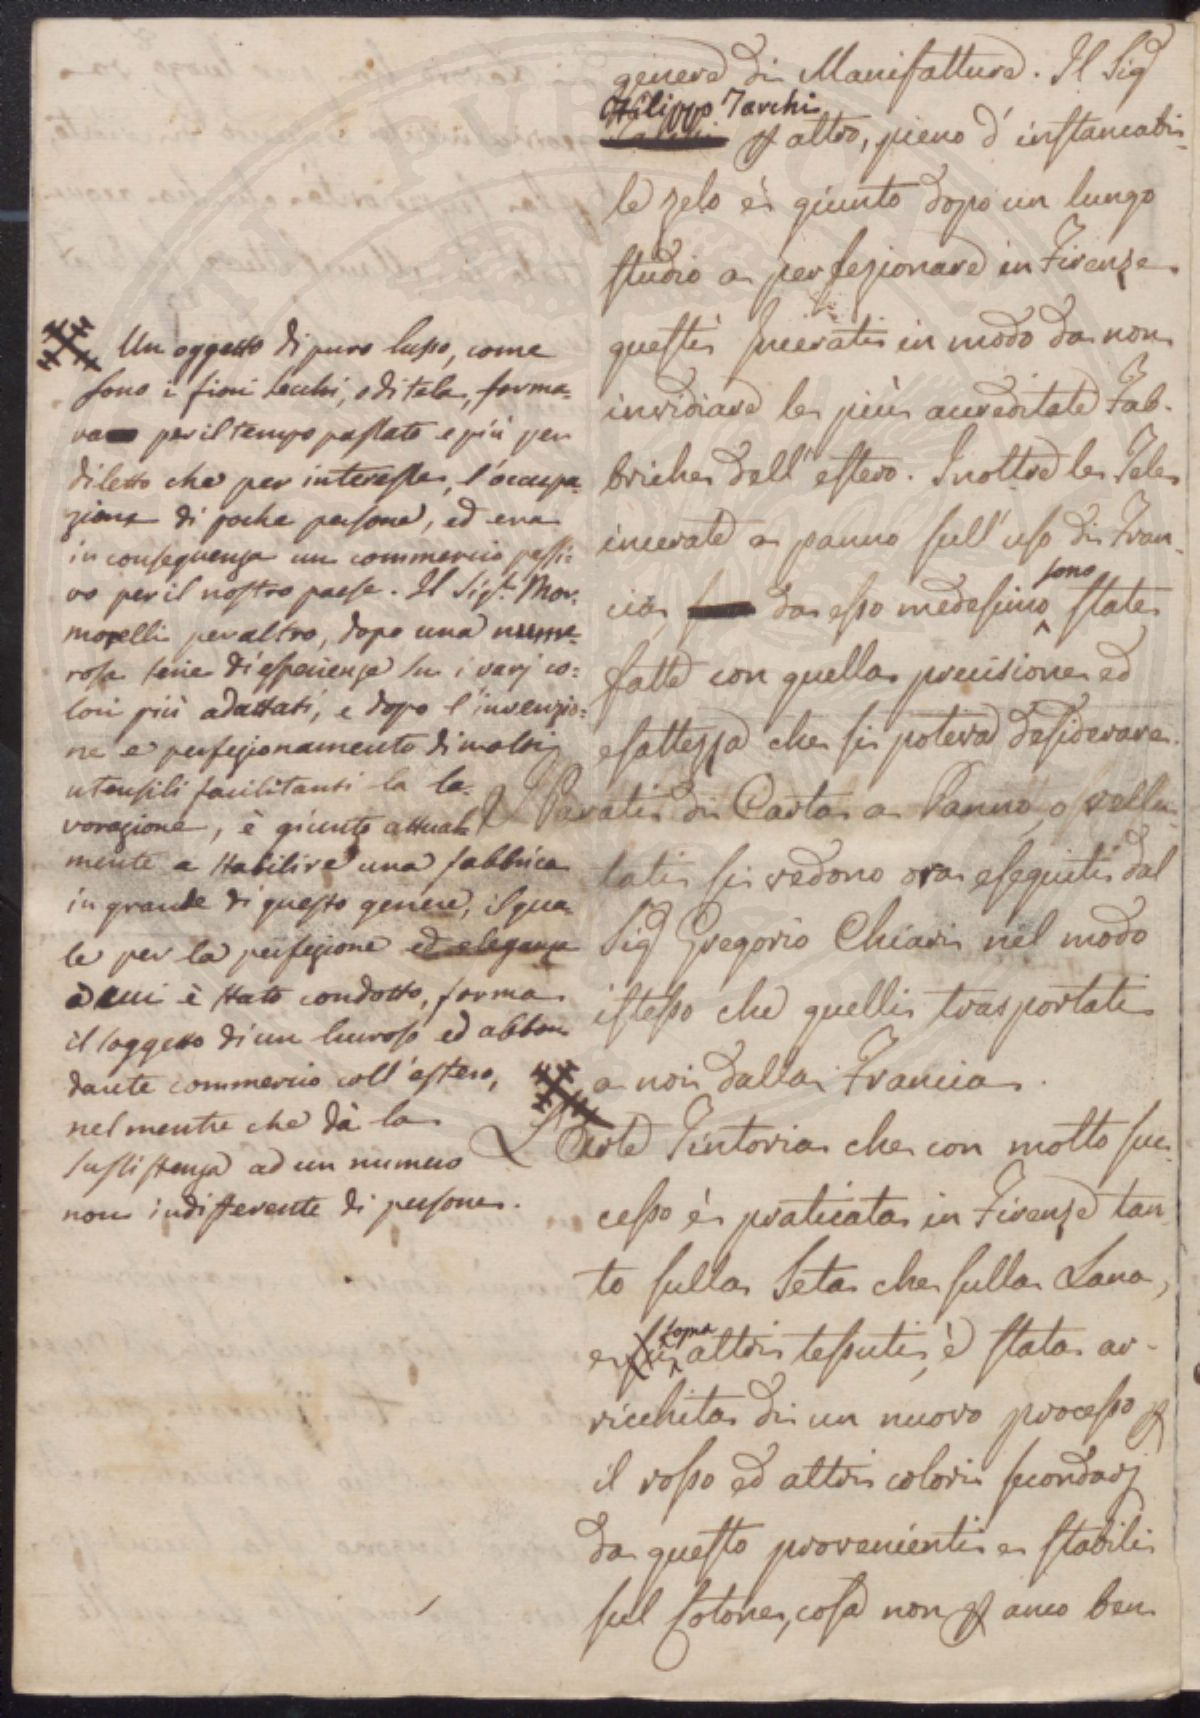 genere di Manifatture. Il Sig.
Filippo Tarchi
altro, pieno d'instancabi-
le zelo è giunto dopo un lungo
studio a perfezionare in Firenze
questi Incerati in modo da non
invidiare le più accreditate Fab-
briche dell'estero. Inoltre le Tele
incerate a panno sull'uso di Fran-
cia da esso medesimo sono state
fatte con quella precisione ed
esattezza che si poteva desiderare.
I Parati di Carta a Panno, o vellu-
tati si vedono ora eseguiti dal
Sig. Gregorio Chiari nel modo
istesso che quelli trasportati
a noi dalla Francia.
L'Arte Tintoria che con molto suc-
cesso è praticata in Firenze tan-
to sulla Seta che sulla Lana,
e sopra altri tessuti, è stata ar-
ricchita di un nuovo processo p
il rosso ed altri colori secondarj
da questo provenienti e stabili
sul Cotone, cosa non p anco ben
Un oggetto di puro lusso, come
sono i fiori secchi, o di tela, forma-
va per il tempo passato e più per
diletto che per interesse, l'occupa-
zione di poche persone, ed era
in conseguenza un commercio passi-
vo per il nostro paese. Il Sig.r Mor-
morelli per altro, dopo una nume-
rosa serie d'esperienze su i varj co-
lori più adattati, e dopo l'invenzio-
ne e perfezionamento di molti
utensili facilitanti la la-
vorazione, è giunto attual-
mente a stabilire una fabbrica
in grande di questo genere, il qua-
le per la perfezione ed eleganza
a cui è stato condotto, forma
il soggetto d'un lucroso ed abbon-
dante commercio coll'estero,
nel mentre che dà la
sussistenza ad un numero
non indifferente di persone.